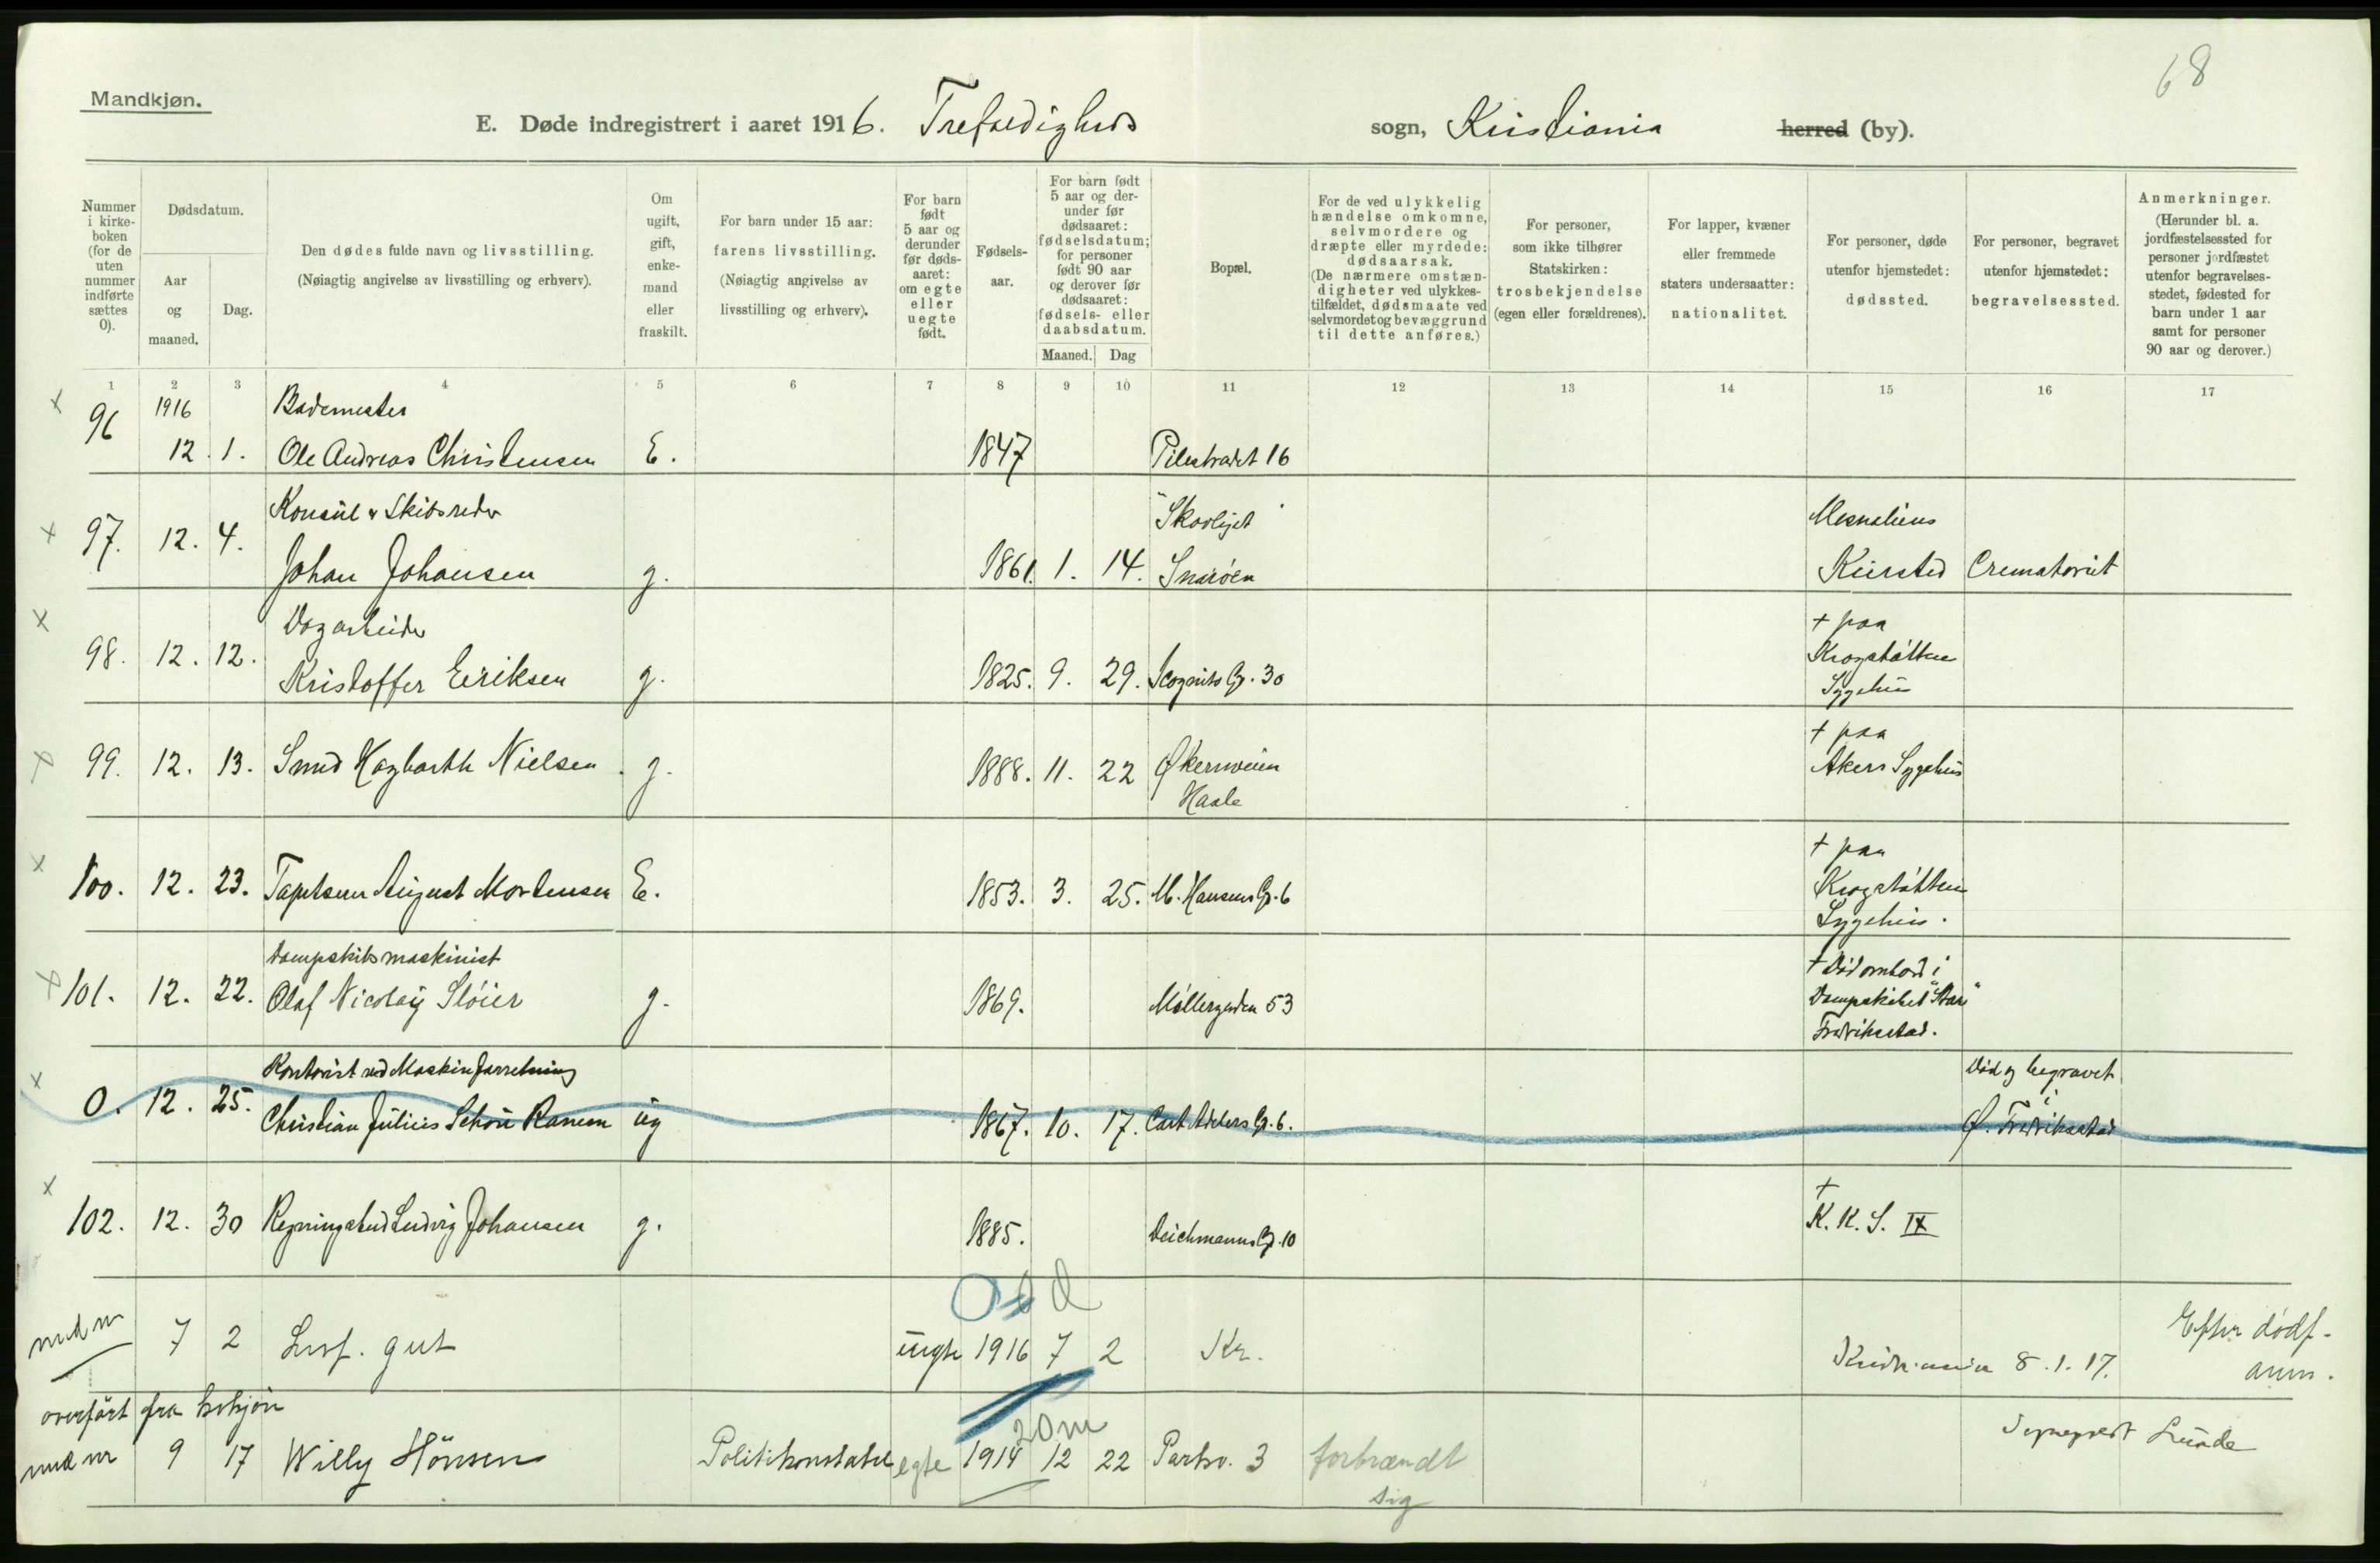 68
Mandkjøn.
E. Døde indregistrert i aaret 1916. Trefoldigheds sogn, Kristiania herred (by).
Nummer i kirke-boken (for de uten nummer indførte sættes 0).
Dødsdatum.
Aar og maaned.
Dag.
Den dødes fulde navn og livsstilling.
(Nøiagtig angivelse av livsstilling og erhverv).
Om ugift, gift, enke-mand eller fraskilt.
For barn under 15 aar: farens livsstilling.
(Nøiagtig angivelse av livsstilling og erhverv).
For barn født 5 aar og derunder før døds-aaret: om egte eller uegte født.
Fødsels-aar.
For barn født 5 aar og der-under før dødsaaret: fødselsdatum; for personer født 90 aar og derover før dødsaaret: fødsels- eller daabsdatum.
Maaned. Dag
Bopæl.
For de ved ulykkelig hændelse omkomne, selvmordere og dræpte eller myrdede: dødsaarsak.
(De nærmere omstæn-digheter ved ulykkes-tilfældet, dødsmaate ved selvmordet og bevæggrund til dette anføres.)
For personer, som ikke tilhører Statskirken: trosbekjendelse (egen eller forældrenes).
For lapper, kvæner eller fremmede staters undersaatter: nationalitet.
For personer, døde utenfor hjemstedet: dødssted.
For personer, begravet utenfor hjemstedet: begravelsessted.
Anmerkninger.
(Herunder bl. a. jordfæstelsessted for personer jordfæstet utenfor begravelses-stedet, fødested for barn under 1 aar samt for personer 90 aar og derover.)
1 2 3 4 5 6 7 8 9 10 11 12 13 14 15 16 17
1916 Bademester
96 12. 1. Ole Andreas Christensen E. 1847 Pilestrædet 16
Konsul & Skibsreder "Skovlyst" Mesnaliens
97. 12. 4. Johan Johansen g. 1861. 1. 14. Snarøen Kursted Crematoriet
Dagarbeider + paa
98. 12. 12. Kristoffer Eeriksen g. 1825. 9. 29. Gp. 30 Krogstøtten
Sygehus
+ paa
99. 12. 13. Hagbarth Nielsen g. 1888. 11. 22 Økernveien Akers Sygehus
+ paa
100. 12. 23. August Mortensen E. 1853. 3. 25. M. Hansens Gp. 6 Krogstøtten
Sygehus.
Dampskibsmaskinist + Død ombord i
101. 12. 22. Olaf Nicolay Sløier g. 1869. Møllergaden 53 Dampskibet
Fredrikstad.
Kontorist ved Maskinforretning Død og begravet
0. 12. 25. Christian Julius Schou ug 1867. 10. 17. Carl Adelers Gp. 6. i
Ø. Fredrikstad
+
102. 12. 30 Ludvig Johansen g. 1885. Deichmanns Gp. 10 K. K. S. IX
0 d
7 2 gut uegte 1916 7 2 Kr. Kristiania 8.1.17. Efter dødf-
anm.
overført fra kvkjøn
20 m
9 17 Willy Hönsen Politikonstabel egte 1914 12 22 Parkv. 3 forbrændt
sig